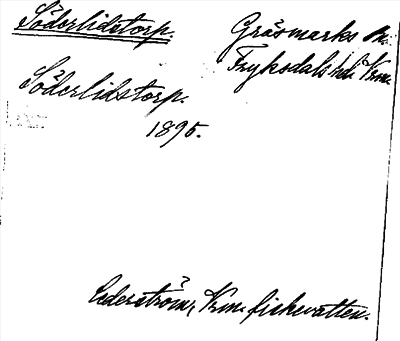 Söderlidstorp.
Gräsmarks sn.
Fryksdals hd Vrm.
Söderlidstorp.
1895.
Cederström, Vrm. fiskevatten.